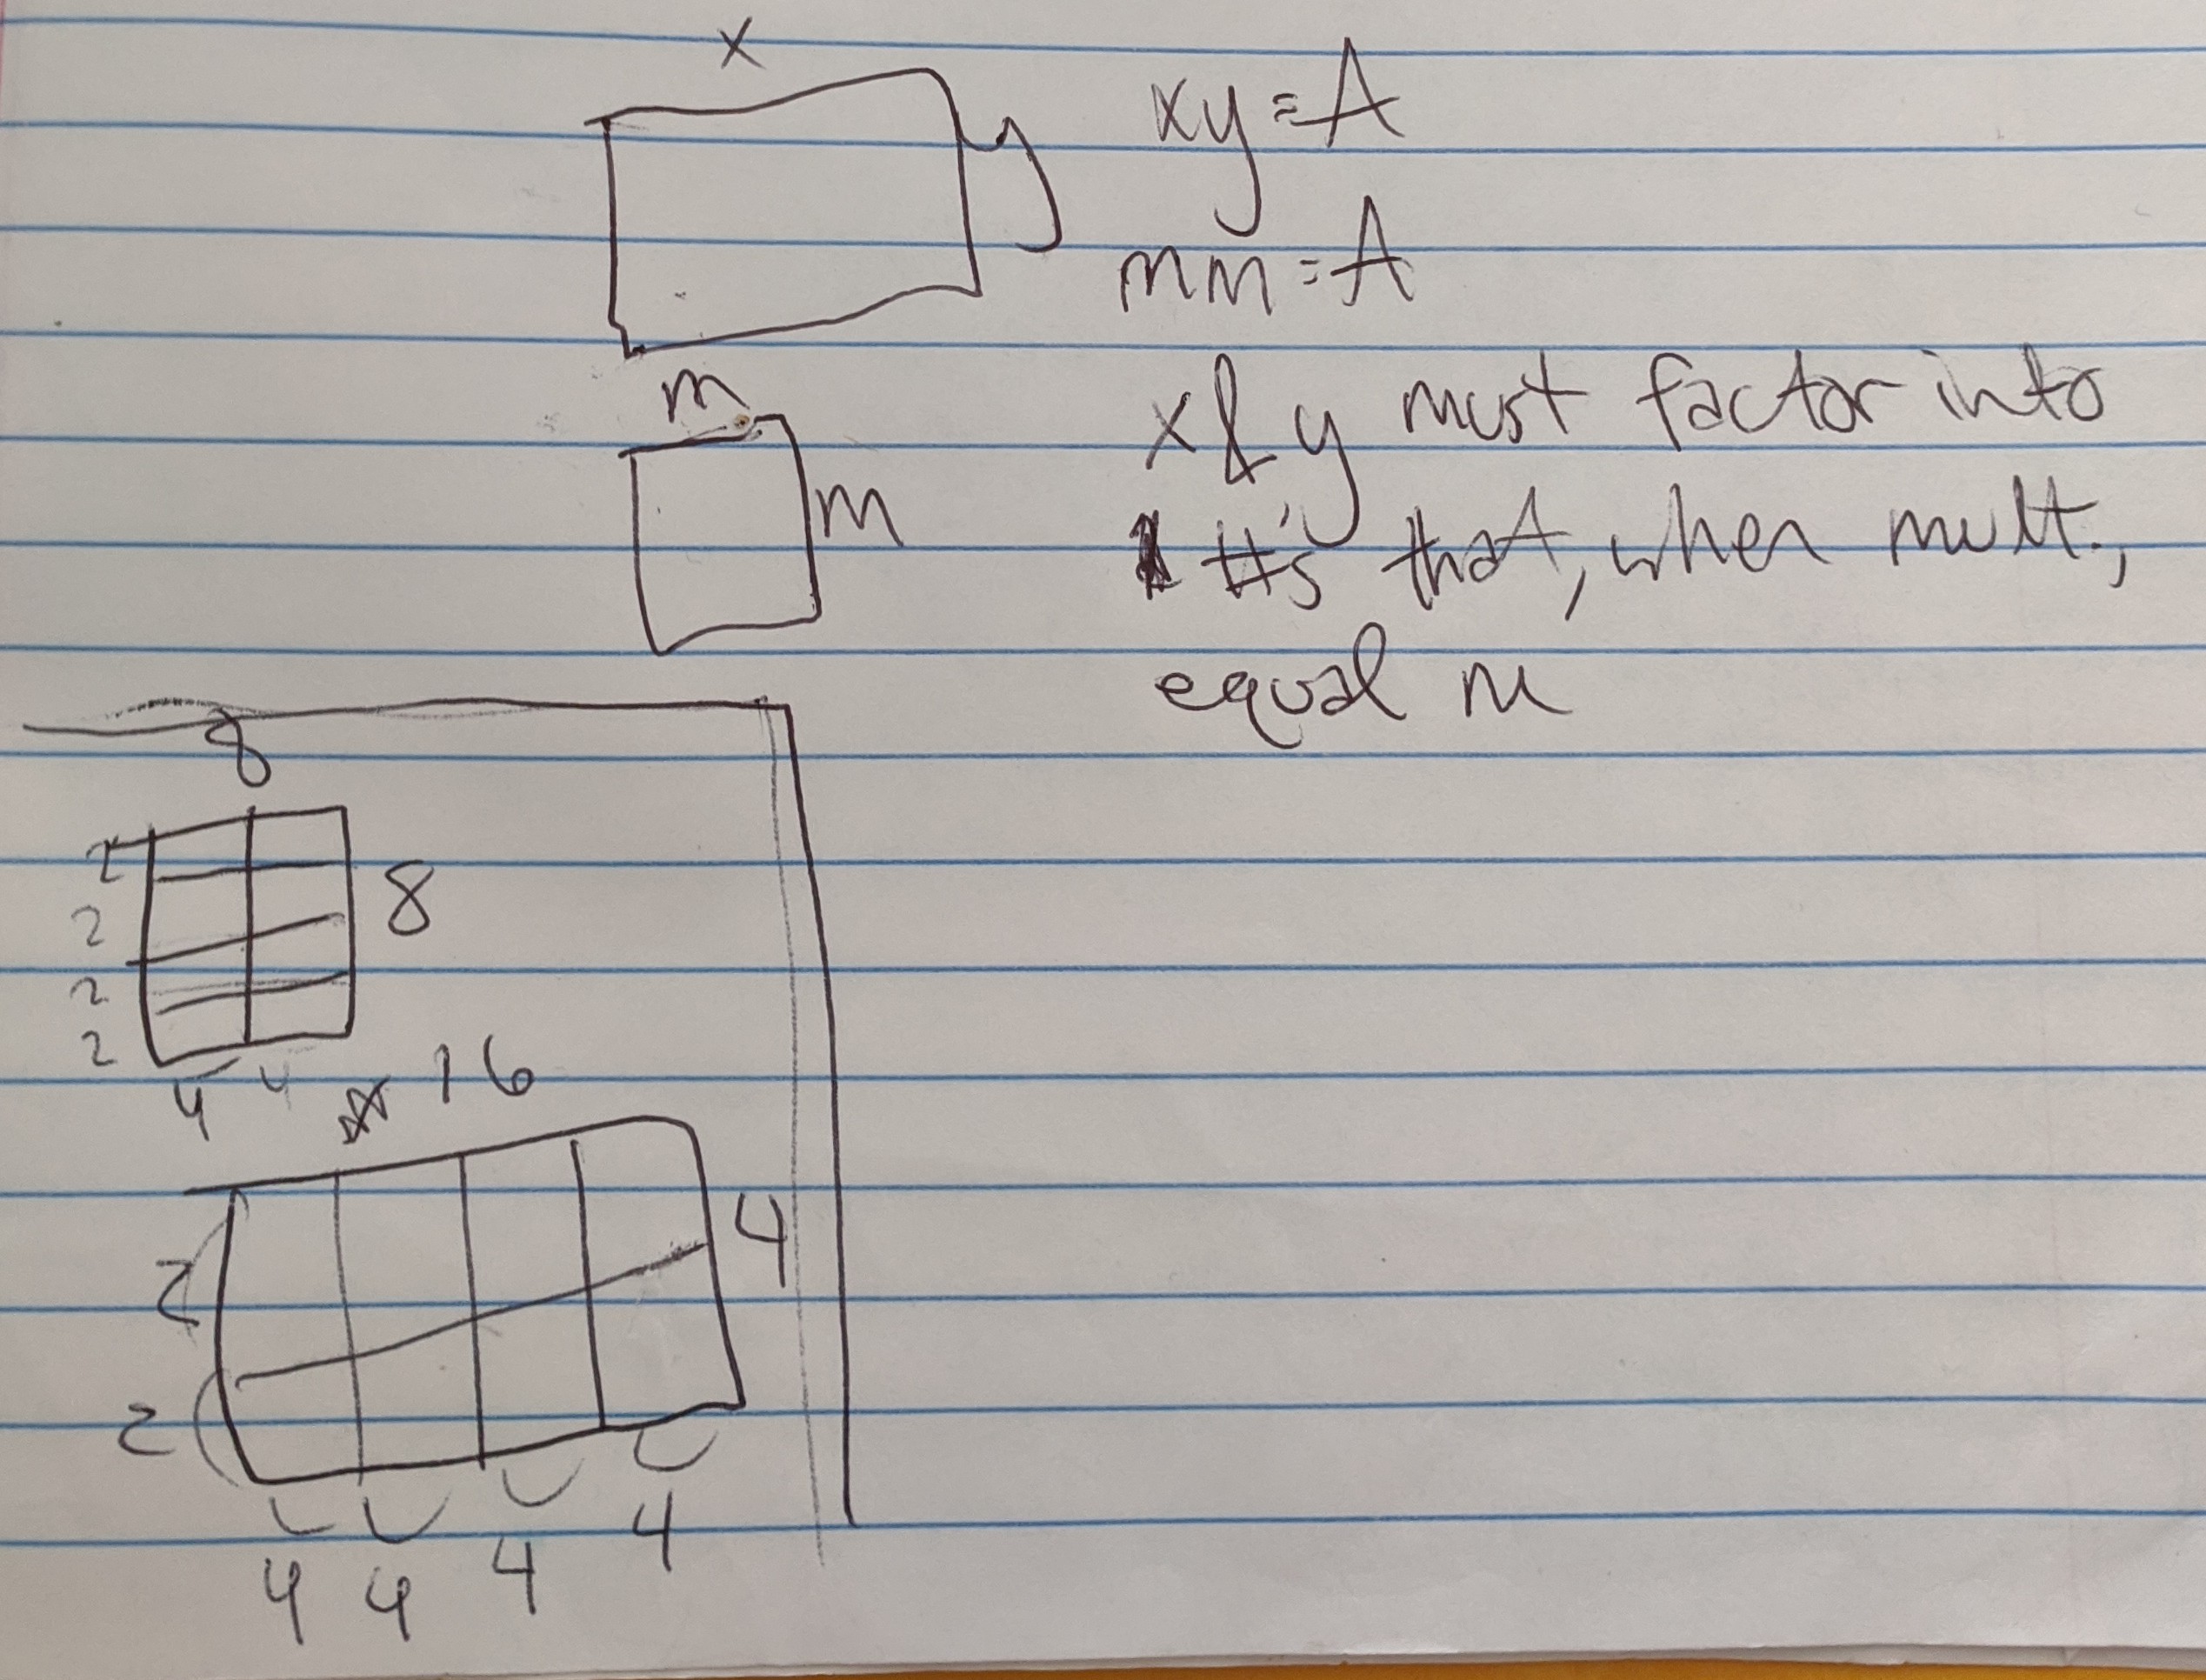 x
y
xy = A
mm = A
m
m
x & y must factor into
#'s that, when mult.,
equal m
8
2
2
2
2
8
4 4
16
4
2
2
4 4 4 4